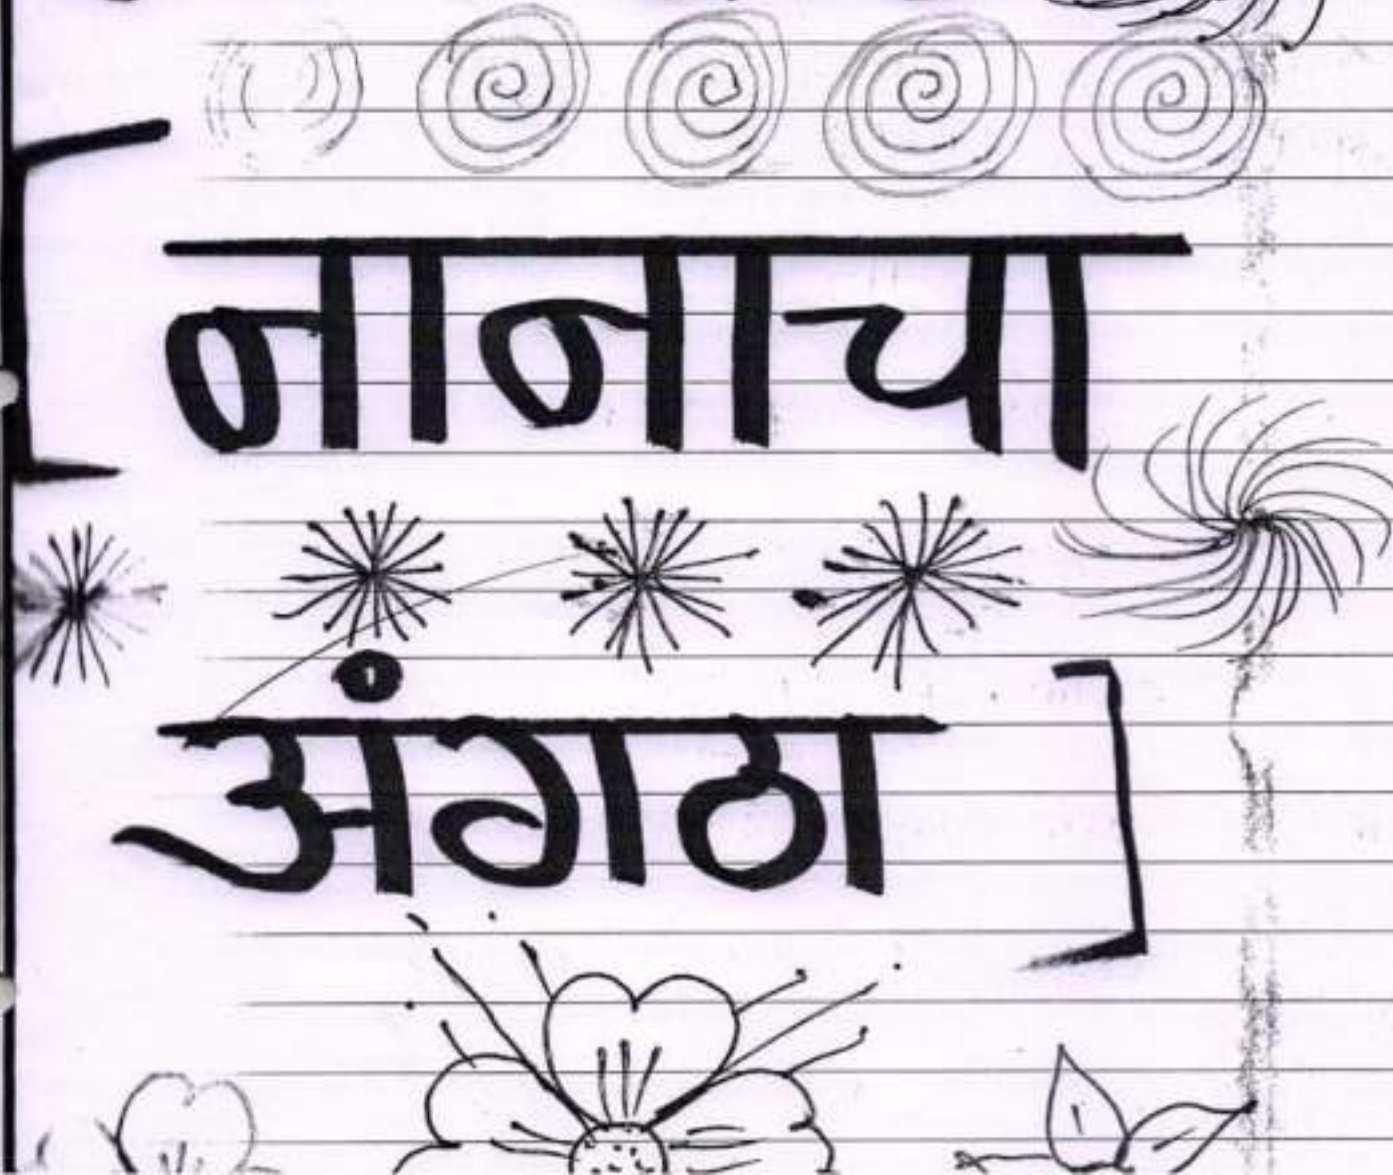 [नानाचा
अंगठा]